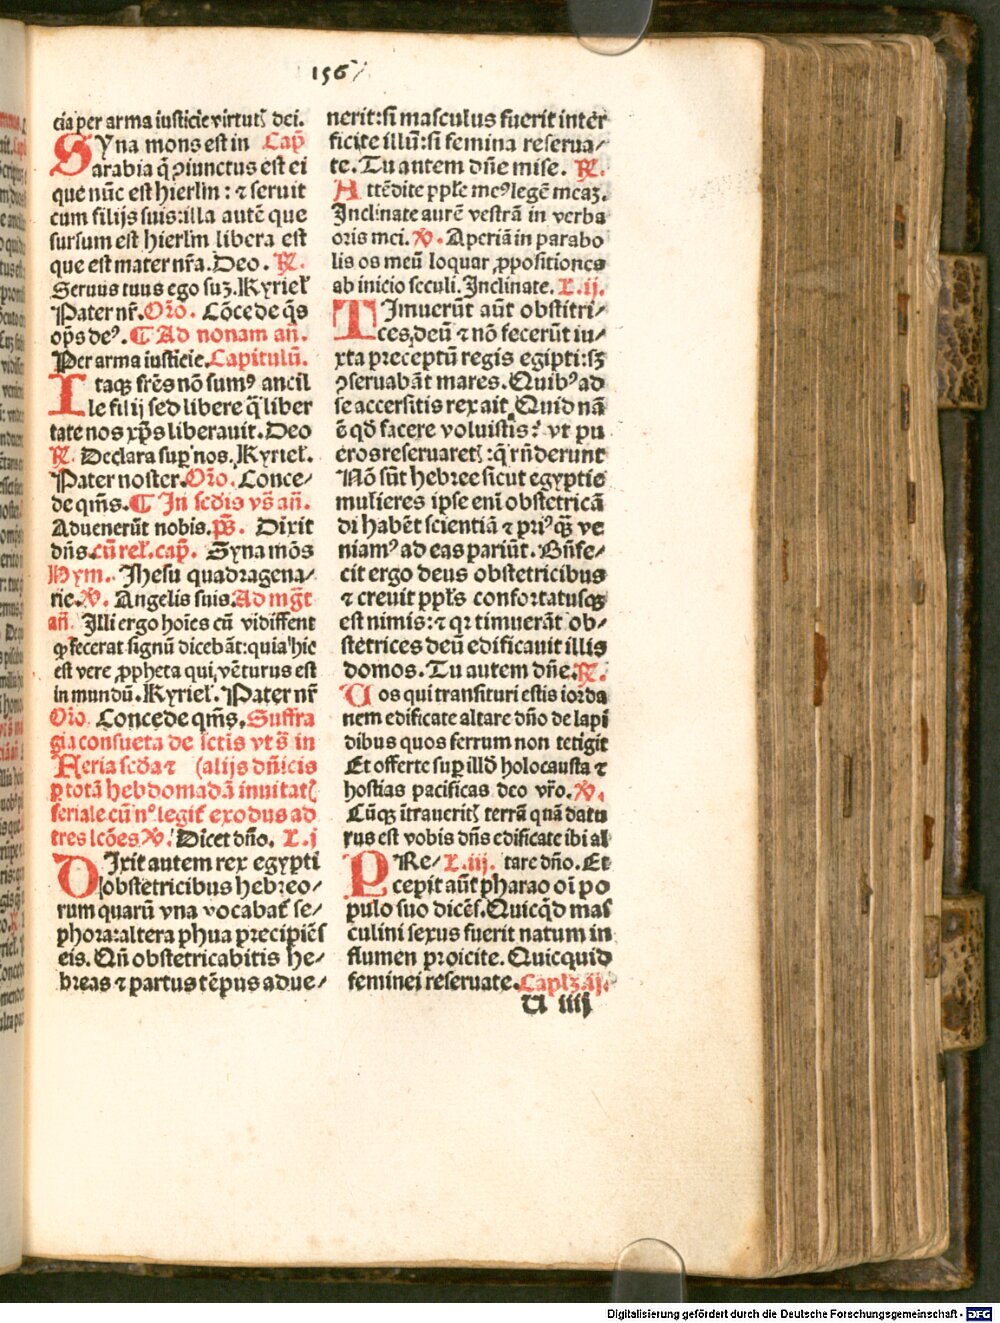 156
cia per arma iusticie virtutꝭ dei.
SYna mons est in Cap̄
arabia q̄ ꝯiunctus est ei
que nūc est hierlm̄ : ⁊ seruit
cum filijs suis:illa autē que
sursum est hierlm̄ libera est
que est mater nr̄a.Deo. ℟.
Seruus tuus ego suꝫ.Kyriel̄
Pater nr̄.Or̄o. Cōcede q̄s
op̄s deꝰ. ¶ Ad nonam an̄.
Per arma iusticie.Capitulū.
Itaqꝫ fr̄es nō sumꝰ ancil
le filij sed libere q̄ liber
tate nos xp̄s liberauit.Deo
℟. Declara sup̄ nos.Kyriel̄.
Pater noster.Or̄o. Conce⸗
de qm̄s. ¶ In scd̄is vs̄ an̄.
Aduenerūt nobis.ps̄. Dixit
dn̄s.cū rel̄.cap̄. Syna mōs
Hym. Jhesu quadragena⸗
rie.℣. Angelis suis.Ad mḡt
an̄. Illi ergo hoīes cū vidissent
ꝙ fecerat signū dicebāt:quia hic
est vere ꝓpheta qui vēturus est
in mundū.Kyriel̄.Pater nr̄
Or̄o. Concede qm̄s.Suffra
gia consueta de sctis vts̄ in
Feria scd̄a ⁊ (alijs dn̄icis
ꝑ totā hebdomadā inuitatꝭ
feriale cū nꝰ.legit̄ exodus ad
tres lcōes ℣. Dicet dn̄o. L.j
DIxit autem rex egypti
obstetricibus hebreo⸗
rum quarū vna vocabat̄ se⸗
phora:altera phua precipiēs
eis. Qn̄ obstetricabitis he⸗
breas ⁊ partus tēpus adue⸗
nerit:si masculus fuerit inter
ficite illū:si femina reserua⸗
te.Tu autem dn̄e mise. ℟.
Attēdite ppl̄e meꝰ legē meaꝫ.
Inclinate aurē vestrā in verba
oris mei.℣. Aperiā in parabo
lis os meū loquar ꝓpositiones
ab inicio seculi.Inclinate. L.ij.
TImuerūt aūt obstitri⸗
ces deū ⁊ nō fecerūt iu⸗
xta preceptū regis egipti:sꝫ
ꝯseruabāt mares.Quibꝰ ad
se accersitis rex ait.Quid nā
ē qd̄ facere voluistis: vt pu
eros reseruaretꝭ:q̄ rn̄derunt
Nō sūt hebree sicut egyptie
mulieres ipse enī obstetricā
di habēt scientiā ⁊ priꝰqꝫ ve
niamꝰ ad eas pariūt. Bn̄fe⸗
cit ergo deus obstetricibus
⁊ creuit ppl̄s confortatusqꝫ
est nimis:⁊ qr timuerāt ob⸗
stetrices deū edificauit illis
domos.Tu autem dn̄e.℟.
Uos qui transituri estis iorda
nem edificate altare dn̄o de lapi
dibus quos ferrum non tetigit
Et offerte suꝑ illd̄ holocausta ⁊
hostias pacificas deo vr̄o.℣.
Cūqꝫ ītraueritꝭ terrā quā datu
rus est vobis dn̄s edificate ibi al
PRe⸗ L.iij. tare dn̄o. Et
cepit aūt pharao oī po
pulo suo dicēs.Quicqd̄ mas
culini sexus fuerit natum in
flumen proicite.Quicquid
feminei reseruate.Caplꝫ.ij.
U iiij
Digitalisierung gefördert durch die Deutsche Forschungsgemeinschaft - DFG